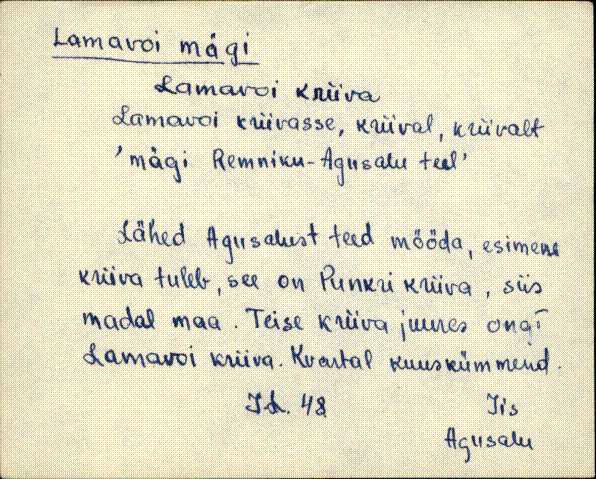 Lamavoi mägi
Lamavoi kriiva
Lamavoi kriivasse, kriival, kriivalt
'mägi Remniku-Agusalu teel'
Lähed Agusalust teed mööda, esimene
kriiva tuleb, see on Punkri kriiva, siis
madal maa. Teise kriiva juures ongi
Lamavoi kriiva. Kvartal kuuskümmend.
Id. 48 Iis
Agusalu